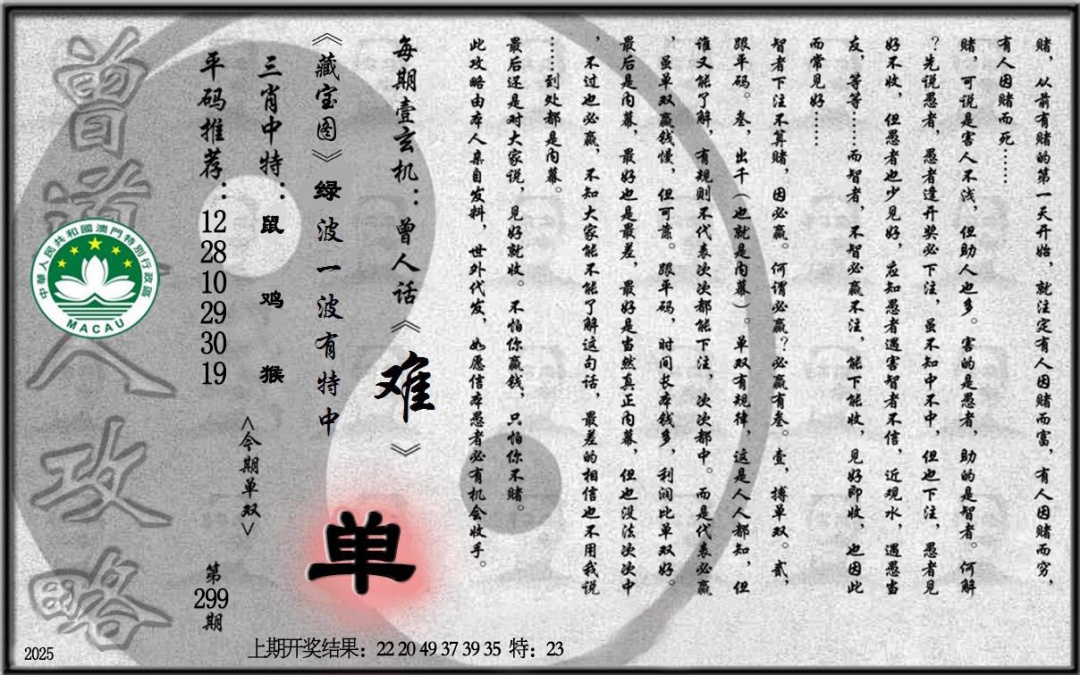 赌，从前有赌的第一天开始，就注定有人因赌而富，有人因赌而穷，
有人因赌而死……
赌，可说是害人不浅，但助人也多。害的是愚者，助的是智者。何解
？先说愚者，愚者逢开奖必下注，虽不知中不中，但也下注，愚者见
好不收，但愚者也少见好，应知愚者遇害智者不信，近观水，遇愚当
友，等等……而智者，不智必赢不注，能下能收，见好即收，也因此
而常见好……
智者下注不算赌，因必赢。何谓必赢？必赢有叁。壹，搏单双。贰，
跟单码。叁，出千（也就是内幕）。单双有规律，这是人人都知，但
谁又能了解，有规则不代表次次都能下注，次次都中。而是代表必赢
，虽单双赢钱慢，但可靠。跟单码，时间长本钱多，利润比单双好。
最后是内幕，最好也是最差，最好是当然真正内幕，但也没法次次中
，不过也必赢，不知大家能不能了解这句话，最差的相信也不用我说
……到处都是内幕。
最后还是对大家说，见好就收。不怕你赢钱，只怕你不赌。
此攻略由本人亲自发料，世外代发，如愿信本愚者必有机会收手。
每期壹玄机：曾人话《难》
《藏宝图》绿波一波有特中
单
三肖中特：鼠 鸡 猴
<今期单双>
平码推荐：12 28 10 29 30 19
第299期
曾道人攻略
中華人民共和國澳門特別行政區
MACAU
2025
上期开奖结果：22 20 49 37 39 35 特：23